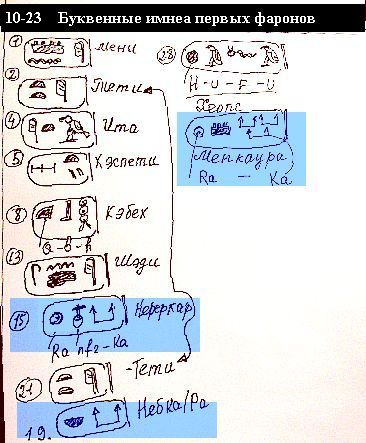 10-23 Буквенные имнеа первых фаронов
1 Мени
2 Тети
4 Ита
5 Кэспети
8 Кэбех
q-b-h
13 Шэди
15 Неферкар
Ra nfr-Ka
21 -Тети
19. Небка/Ра
28
H-U-F-U
Хеопс
Менкаура
Ra - Ka